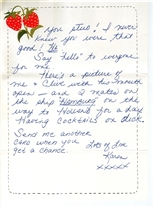 you stud! I never
knew you were that
good!
Say "hello" to everyone
for me.
Here's a picture of
me & Clive with his mouth
open — and 2 makos on
the ship Hamburg on the
way to Holland for a day
Having cocktails on deck.
Send me another
card when you
get a chance.
Lots of love
Karen
xxxxx